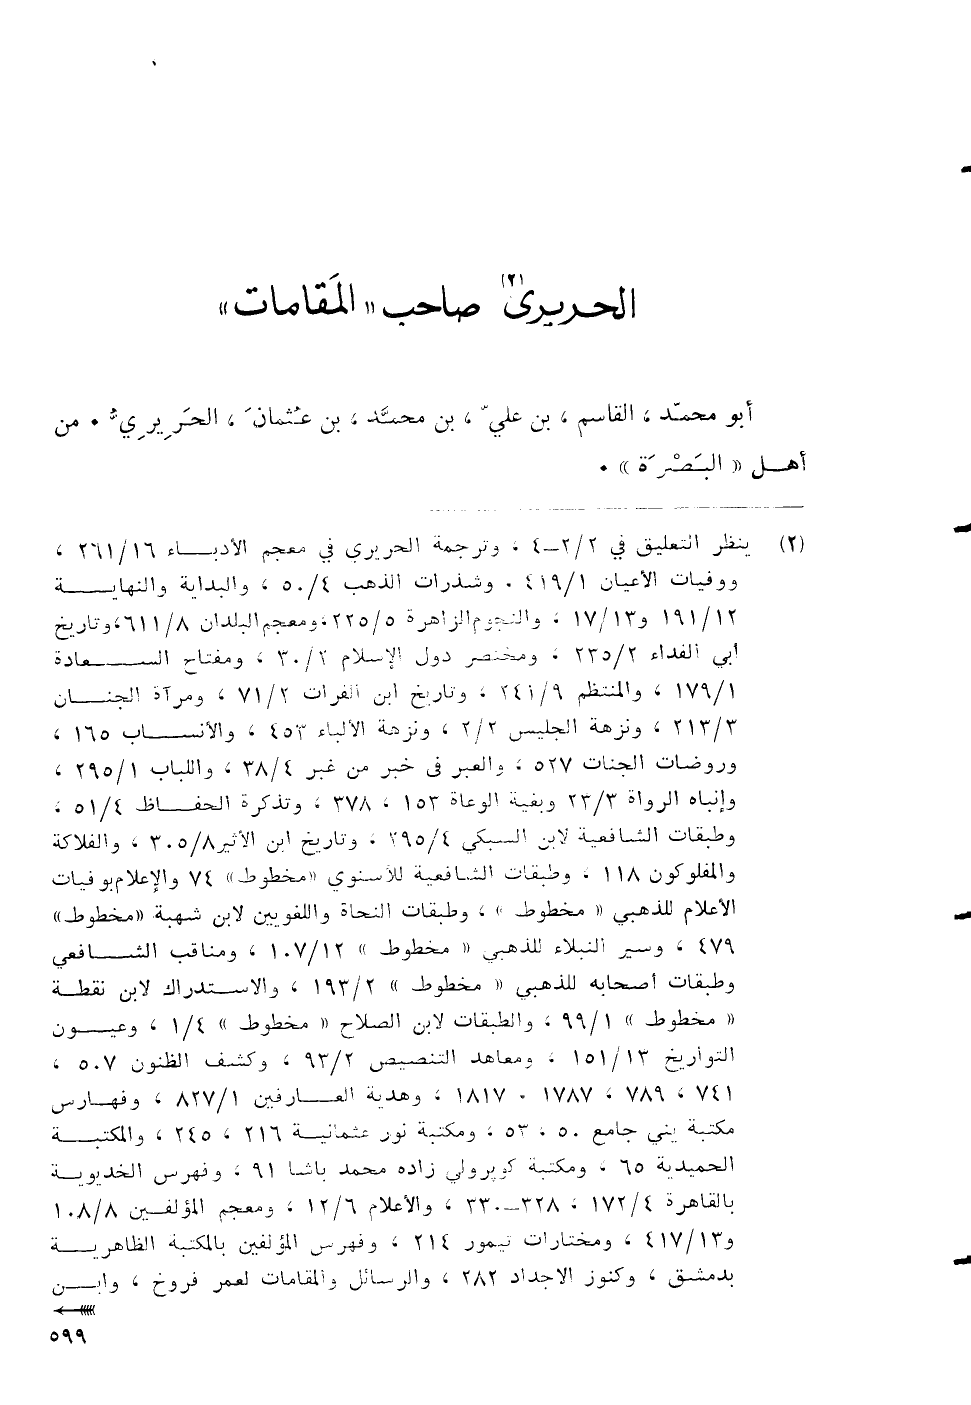 الحريري(٢) صاحب «المَقامات»
أبو محمّد ، القاسم ، بن عليّ ، بن محمَّد ، بن عُثمانَ ، الحَرِيرِيُّ ٠ من
أهــل « البَصْرَة » ٠
(٢) ينظر التعليق في ٢/٢ــ٤ ، وترجمة الحريري في معجم الأدبــاء ٢٦١/١٦ ،
ووفيات الأعيان ٤١٩/١ ٠ وشذرات الذهب ٥٠/٤ ، والبداية والنهايــة
١٩١/١٢ و١٧/١٣ ، والنجوم الزاهرة ٢٢٥/٥ ، ومعجم البلدان ٦١١/٨ ، وتاريخ
أبي الفداء ٢٣٥/٢ ، ومختصر دول الإسلام ٣٠/٢ ، ومفتاح الســعادة
١٧٩/١ ، والمنتظم ٢٤١/٩ ، وتاريخ ابن الفرات ٧١/٢ ، ومرآة الجنــان
٢١٣/٣ ، ونزهة الجليس ٢/٢ ، ونزهة الألباء ٤٥٣ ، والأنســاب ١٦٥ ،
وروضات الجنات ٥٢٧ ، والعبر في خبر من غبر ٣٨/٤ ، واللباب ٢٩٥/١ ،
وإنباه الرواة ٢٣/٣ وبغية الوعاة ١٥٣ ، ٣٧٨ ، وتذكرة الحفــاظ ٥١/٤ ،
وطبقات الشافعية لابن السبكي ٢٩٥/٤ ، وتاريخ ابن الأثير ٣٠٥/٨ ، والفلاكة
والمفلوكون ١١٨ ، وطبقات الشافعية للأسنوي «مخطوط» ٧٤ والإعلام بوفيات
الأعلام للذهبي « مخطوط » ، وطبقات النحاة واللغويين لابن شهبة «مخطوط»
٤٧٩ ، وسير النبلاء للذهبي « مخطوط » ١٠٧/١٢ ، ومناقب الشــافعي
وطبقات أصحابه للذهبي « مخطوط » ١٩٣/٢ ، والاســتدراك لابن نقطــة
« مخطوط » ٩٩/١ ، والطبقات لابن الصلاح « مخطوط » ١/٤ ، وعيــون
التواريخ ١٥١/١٣ ، ومعاهد التنصيص ٩٣/٢ ، وكشف الظنون ٥٠٧ ،
٧٤١ ، ٧٨٩ ، ١٧٨٧ ، ١٨١٧ ، وهدية العــارفين ٨٢٧/١ ، وفهــارس
مكتبة يني جامع ٥٠ ، ٥٣ ، ومكتبة نور عثمانيــة ٢١٦ ، ٢٤٥ ، والمكتبــة
الحميدية ٦٥ ، ومكتبة كوپرولي زاده محمد باشا ٩١ ، وفهرس الخديويــة
بالقاهرة ١٧٢/٤ ، ٣٢٨ــ٣٣٠ ، والأعلام ١٢/٦ ، ومعجم المؤلفــين ١٠٨/٨
و٤١٧/١٣ ، ومختارات تيمور ٢١٤ ، وفهرس المؤلفين بالمكتبة الظاهريــة
بدمشق ، وكنوز الاجداد ٢٨٢ ، والرسائل والمقامات لعمر فروخ ، وابــن
٥٩٩